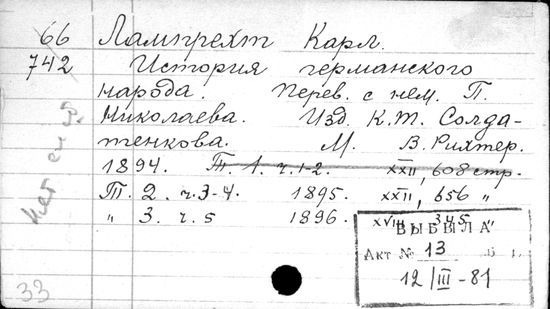 66 Лампрехт Карл.
742 История германского
народа. Перев. с нем. П.
Николаева. Изд. К.Т. Солда-
тенкова. М. В. Рихтер.
1894. Т. 1. ч.1-2. XXII, 608 стр.
Т. 2. ч.3-4. 1895. XXII, 656 "
" 3. ч.5 1896. XVIII, 345 "
ВЫБЫЛА
Акт № 13
12/III-81
Нет
33